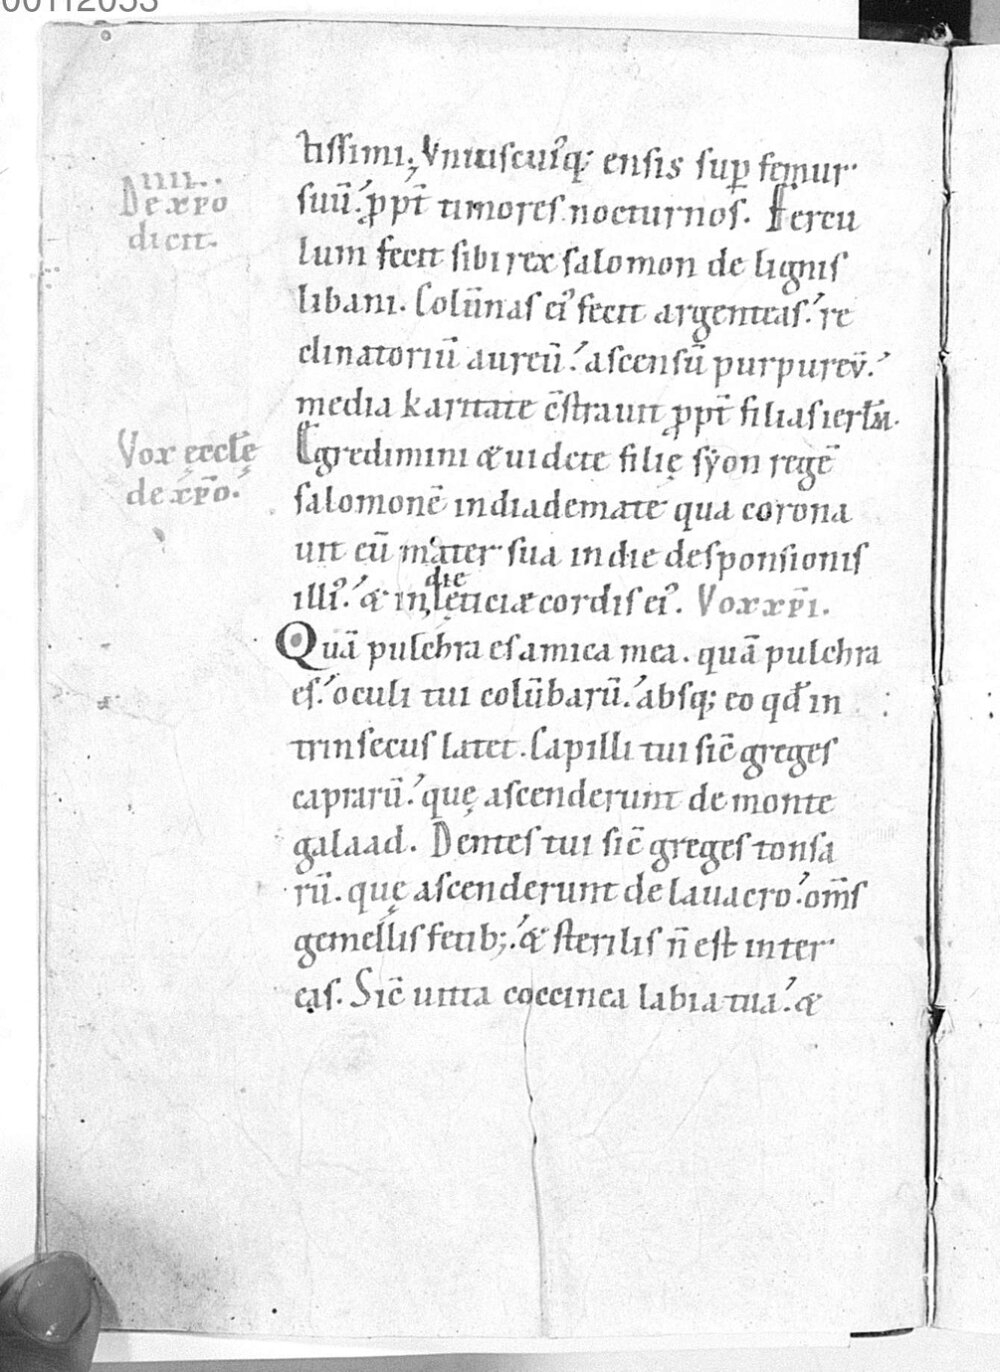 00112053
tissimi; Vniuscuiꝰq; ensis sup̲ femur
suū.ꝓpt̄ timores nocturnos. Fercu
IIII.
De xp̄o
dicit.
lum fecit sibi rex salomon de lignis
libani. Colūnas eiꝰ fecit argenteas. re
clinatoriū aureū. ascensū purpureū.
media karitate c̄strauit ꝓpt̄ filias ierłm.
Egredimini & uidete filię syon regē
Vox ęccłę
de xp̄o.
salomonē in diademate qua corona
uit eū mater sua in die desponsionis
illiꝰ. & in die lęticiæ cordis eiꝰ. Vox xp̄i.
Quā pulchra es amica mea. quā pulchra
es. oculi tui colūbarū. absq; eo qđ in
trinsecus latet. Capilli tui sic̄ greges
caprarū. quę ascenderunt de monte
galaad. Dentes tui sic̄ greges tonsa
rū. quę ascenderunt de lauacro. om̄s
gemellis fetib;. & sterilis n̄ est inter
eas. Sic̄ uitta coccinea labia tua. &